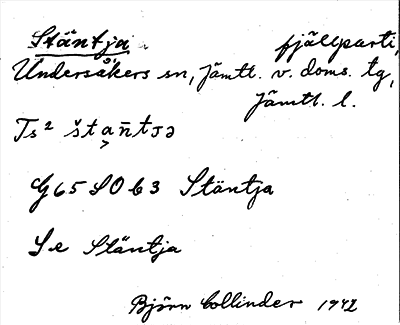 Stäntja fjällparti,
Undersåkers sn, Jämtl. v. doms. tg,
Jämtl. l.
Ts² štan̄tɜə
G65 S0 63 Stäntja
Se Stäntja
Björn Collinder 1942